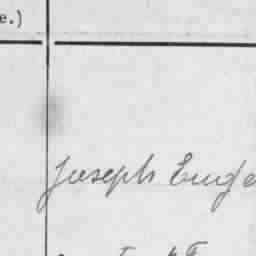 e.)
Joseph Euge